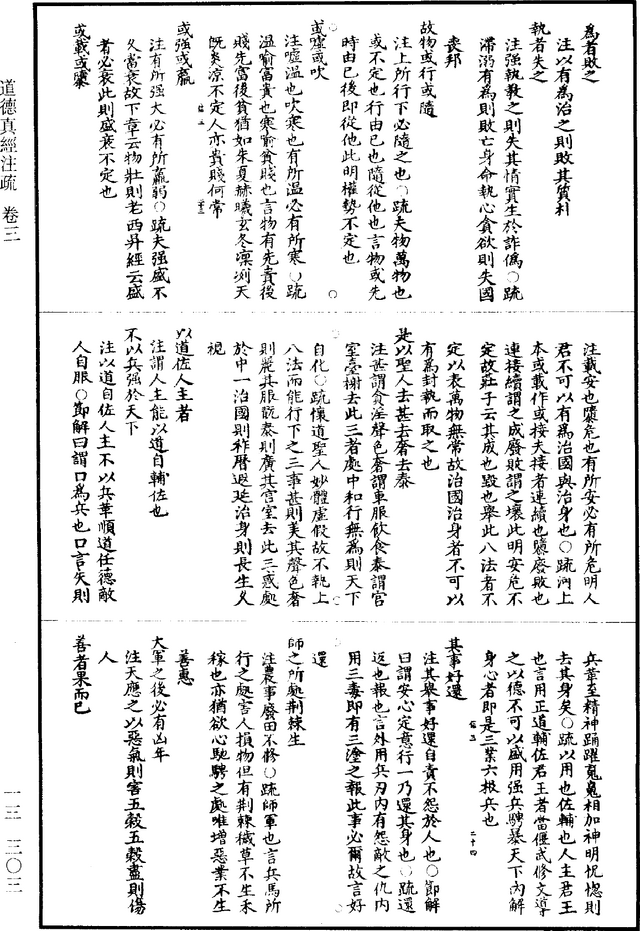 為者敗之
注以有為治之則敗其質朴
執者失之
注強執教之則失其情實生於詐偽○疏
滯溺有為則敗亡身命執心貪欲則失國
喪邦
故物或行或隨
注上所行下必隨之也○疏夫物萬物也
或不定也行由己也隨從他也言物或先
時由已後即從他此明權勢不定也
或噓或吹
注噓溫也吹寒也有所溫必有所寒○疏
溫喻富貴也寒喻貧賤也言物有先貴後
賤先富後貧猶如朱夏赫曦玄冬凜冽天
既炎涼不定人亦貴賤何常
或強或羸
注有所强大必有所羸弱○疏夫强盛不
久當衰故下章云物壯則老西昇經云盛
者必衰此則盛衰不定也
或載或隳
注載安也隳危也有所安必有所危明人
君不可以有為治國與治身也○疏河上
本或載作或接夫接者連續也隳廢敗也
連接續謂之成廢敗謂之壞此明安危不
定故莊子云其成也毀也舉此八法者不
定以表萬物無常故治國治身者不可以
有為封執而取之也
是以聖人去甚去奢去泰
注甚謂貪淫聲色奢謂車服飲食泰謂宮
室臺榭去此三者處中和行無為則天下
自化○疏懷道聖人妙體虛假故不執上
八法而能行下之三事甚則美其聲色奢
則麗其服翫泰則廣其宮室去此三惑處
於中一治國則祚曆遐延治身則長生久
視
以道佐人主者
注謂人主能以道自輔佐也
不以兵强於天下
注以道自佐人主不以兵革順道任德敵
人自服○節解曰謂口為兵也口言矢則
兵革至精神踊躍寃鬼相加神明怳惚則
去其身矣○疏以用也佐輔也人主君王
也言用正道輔佐君王者當偃武修文導
之以德不可以盛用强兵騁暴天下內解
身心者即是三業六根兵也
其事好還
注其舉事好還自責不怨於人也○節解
曰謂安心定意行一乃還其身也○疏還
返也報也言外用兵刃內有怨敵之仇內
用三毒即有三塗之報此事必爾故言好
還
師之所處荆棘生
注農事廢田不修○疏師軍也言兵馬所
行之處害人損物但有荆棘穢草不生禾
稼也亦猶欲心馳騁之處唯增惡業不生
善惠
大軍之後必有凶年
注天應之以惡氣則害五穀五穀盡則傷
人
善者果而已
道德真經注疏 卷三
一三 三〇三